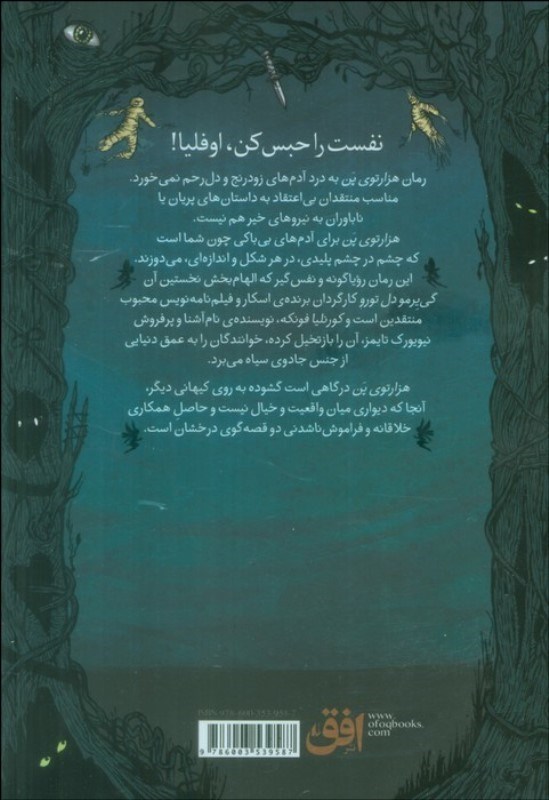 نفست را حبس کن، اوفلیا!
رمان هزارتوی پَن به درد آدم‌های زودرنج و دل‌رحم نمی‌خورد.
مناسب منتقدان بی‌اعتقاد به داستان‌های پریان یا
ناباوران به نیروهای خیر هم نیست.
هزارتوی پَن برای آدم‌های بی‌باکی چون شما است
که چشم در چشم پلیدی، در هر شکل و اندازه‌ای، می‌دوزند.
این رمان رؤیاگونه و نفس‌گیر که الهام‌بخش نخستین آن
گی‌یرمو دل تورو کارگردان برنده‌ی اسکار و فیلم‌نامه‌نویس محبوب
منتقدین است و کورنلیا فونکه، نویسنده‌ی نام‌آشنا و پرفروش
نیویورک تایمز، آن را بازتخیل کرده، خوانندگان را به عمق دنیایی
از جنس جادوی سیاه می‌برد.
هزارتوی پَن درگاهی است گشوده به روی کیهانی دیگر،
آنجا که دیواری میان واقعیت و خیال نیست و حاصل همکاری
خلاقانه و فراموش‌ناشدنی دو قصه‌گوی درخشان است.
9 786003 539587
نشر افق
www.
ofoqbooks.
com